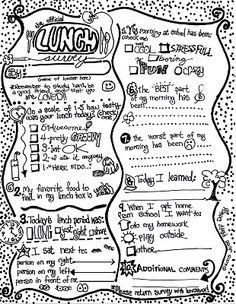 the official
LUNCH
survey
OH
(name of teacher here)
Remember to study hard be
a good friend, and that you
are LOVED!
1. On a scale of 1-5 how tasty
was your lunch today? (check)
5-awesome
4-pretty
3-
2-
1-
2. My favorite food to
find in my lunch box is
3. Today's lunch period was:
LONG just right
I sat next to:
person on my right
person on my left
person in front of me
5. My morning at school has been:
COOL STRESSFUL
boring
FUN CRAZY
6. the BEST part of
my morning has
been
7. the worst part of my
morning has been
8. Today I learned:
9. When I get home
from school I want to:
do my homework
play outside
other:
ADDITIONAL COMMENTS
Please return survey with lunchbox!